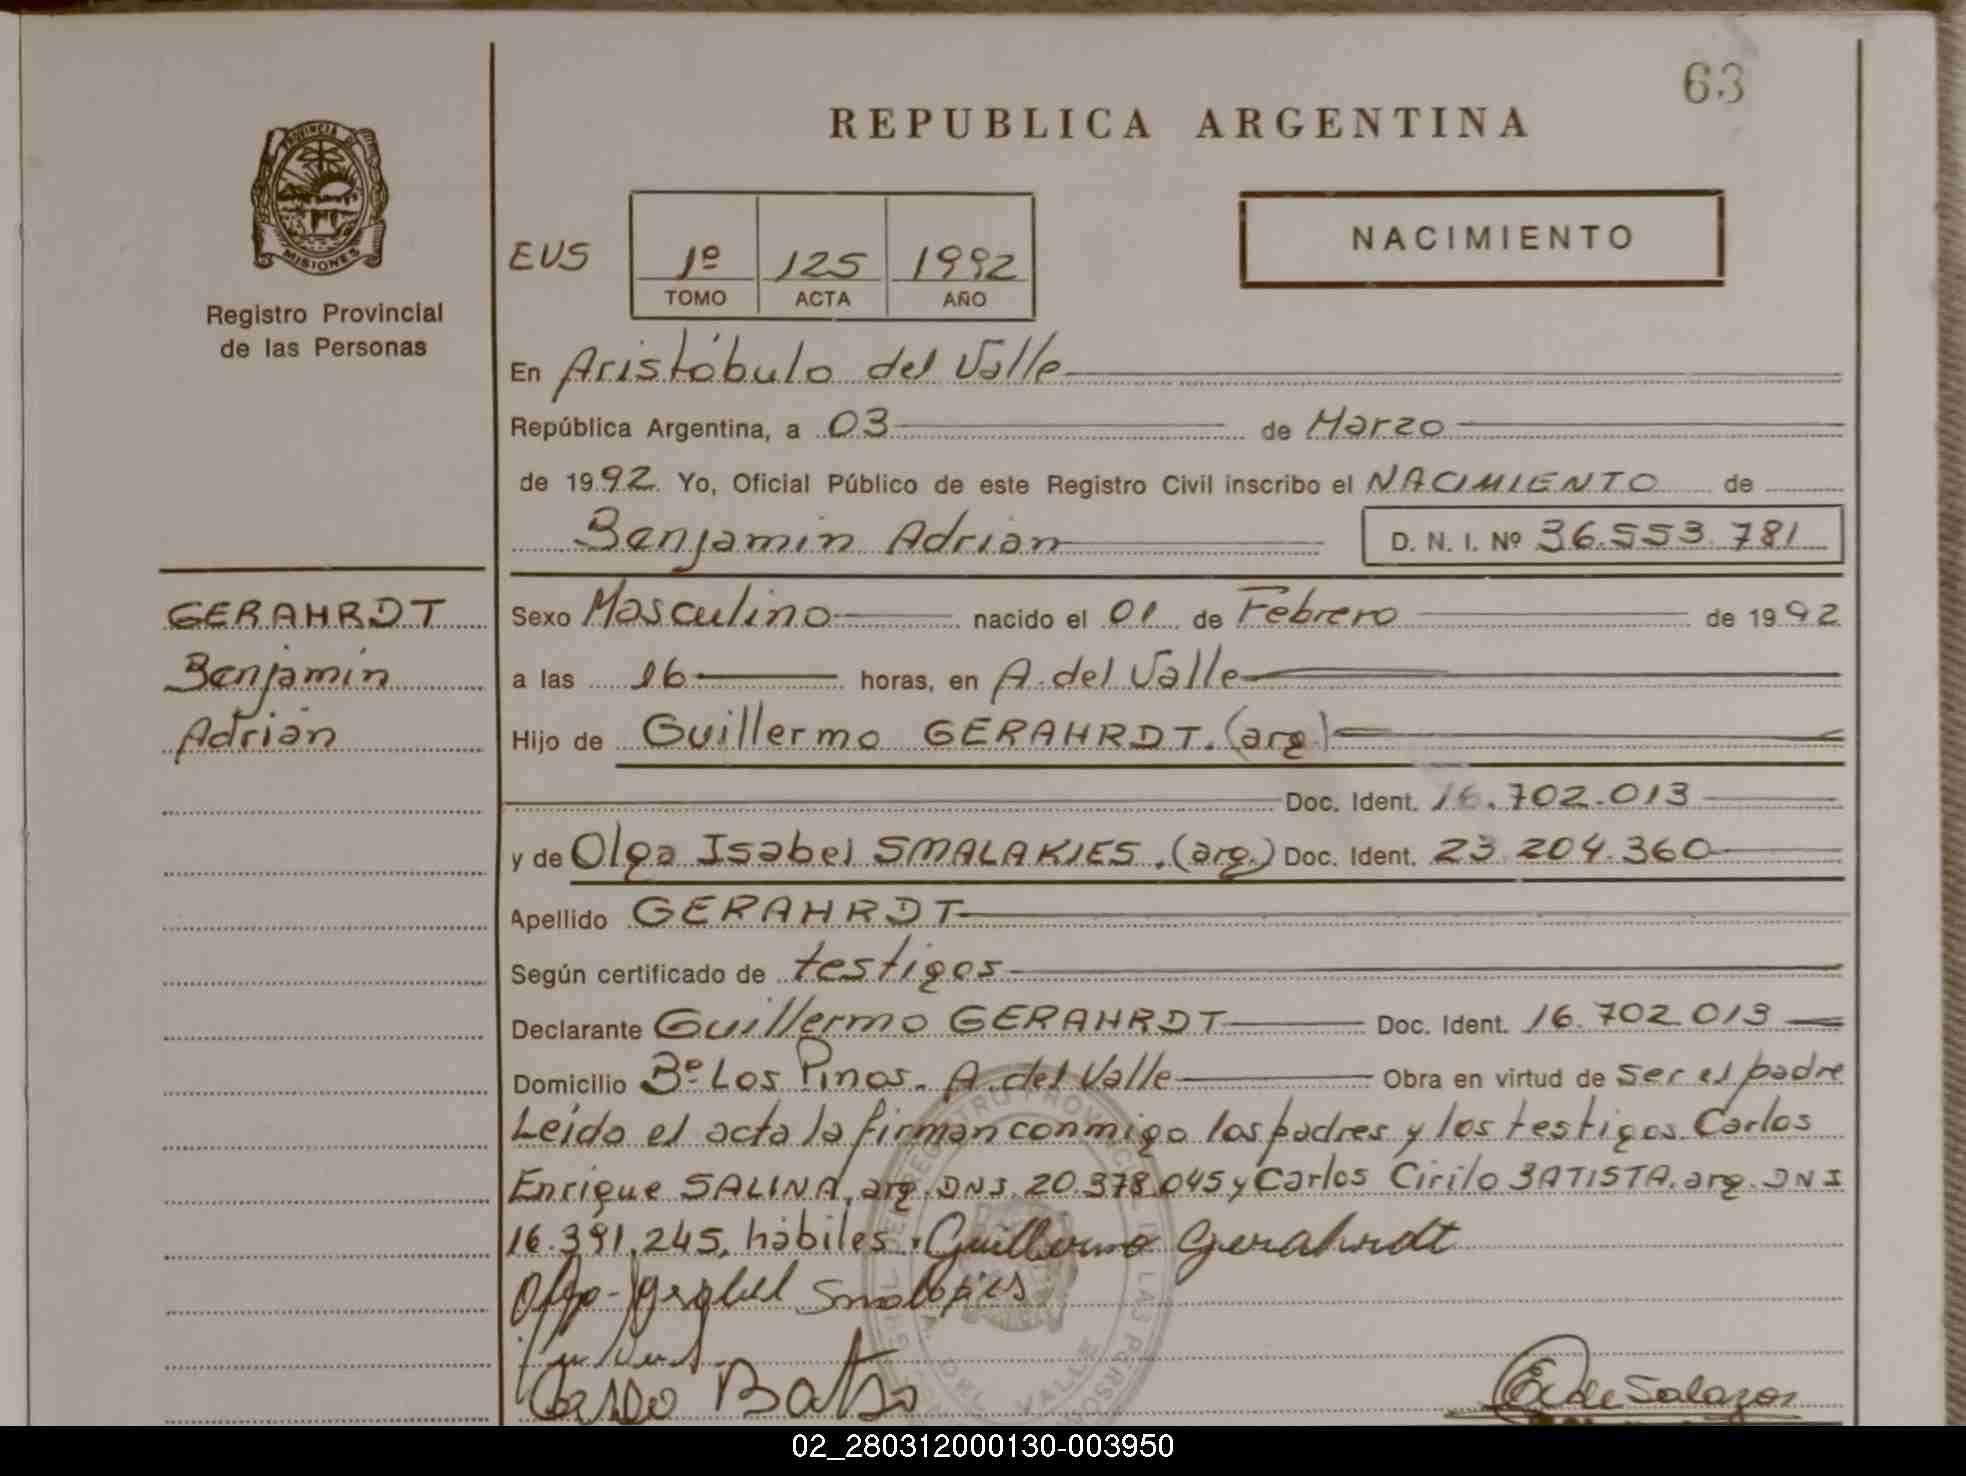 63
REPUBLICA ARGENTINA
PROVINCIA DE
MISIONES
Registro Provincial
de las Personas
NACIMIENTO
EVS 1º 125 1992
TOMO ACTA AÑO
En Aristóbulo del Valle
República Argentina, a 03 de Marzo
de 1992 Yo, Oficial Público de este Registro Civil inscribo el NACIMIENTO de
Benjamin Adrian D. N. I. Nº 36.553.781
GERAHRDT
Benjamín
Adrián
Sexo Masculino nacido el 01 de Febrero de 1992
a las 16 horas, en A. del Valle
Hijo de Guillermo GERAHRDT. (arg.)
Doc. Ident. 16.702.013
y de Olga Isabel SMALAKIES. (arg.) Doc. Ident. 23.204.360
Apellido GERAHRDT
Según certificado de testigos
Declarante Guillermo GERAHRDT Doc. Ident. 16.702.013
Domicilio Bº Los Pinos. A. del Valle Obra en virtud de ser el padre
Leido el acta la firman conmigo los padres y los testigos Carlos
Enrique SALINA, arg. DNI. 20.378.045 y Carlos Cirilo BATISTA. arg. DNI
16.391.245, hábiles. Guillermo Gerahrdt
Olga Ysabel
E. de Salazar
02_280312000130-003950